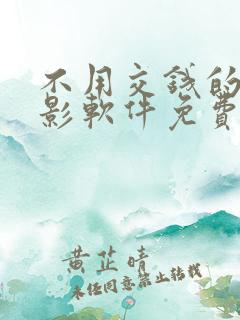 不用交錢的
影軟件免費
黄芷晴
未经同意禁止转载